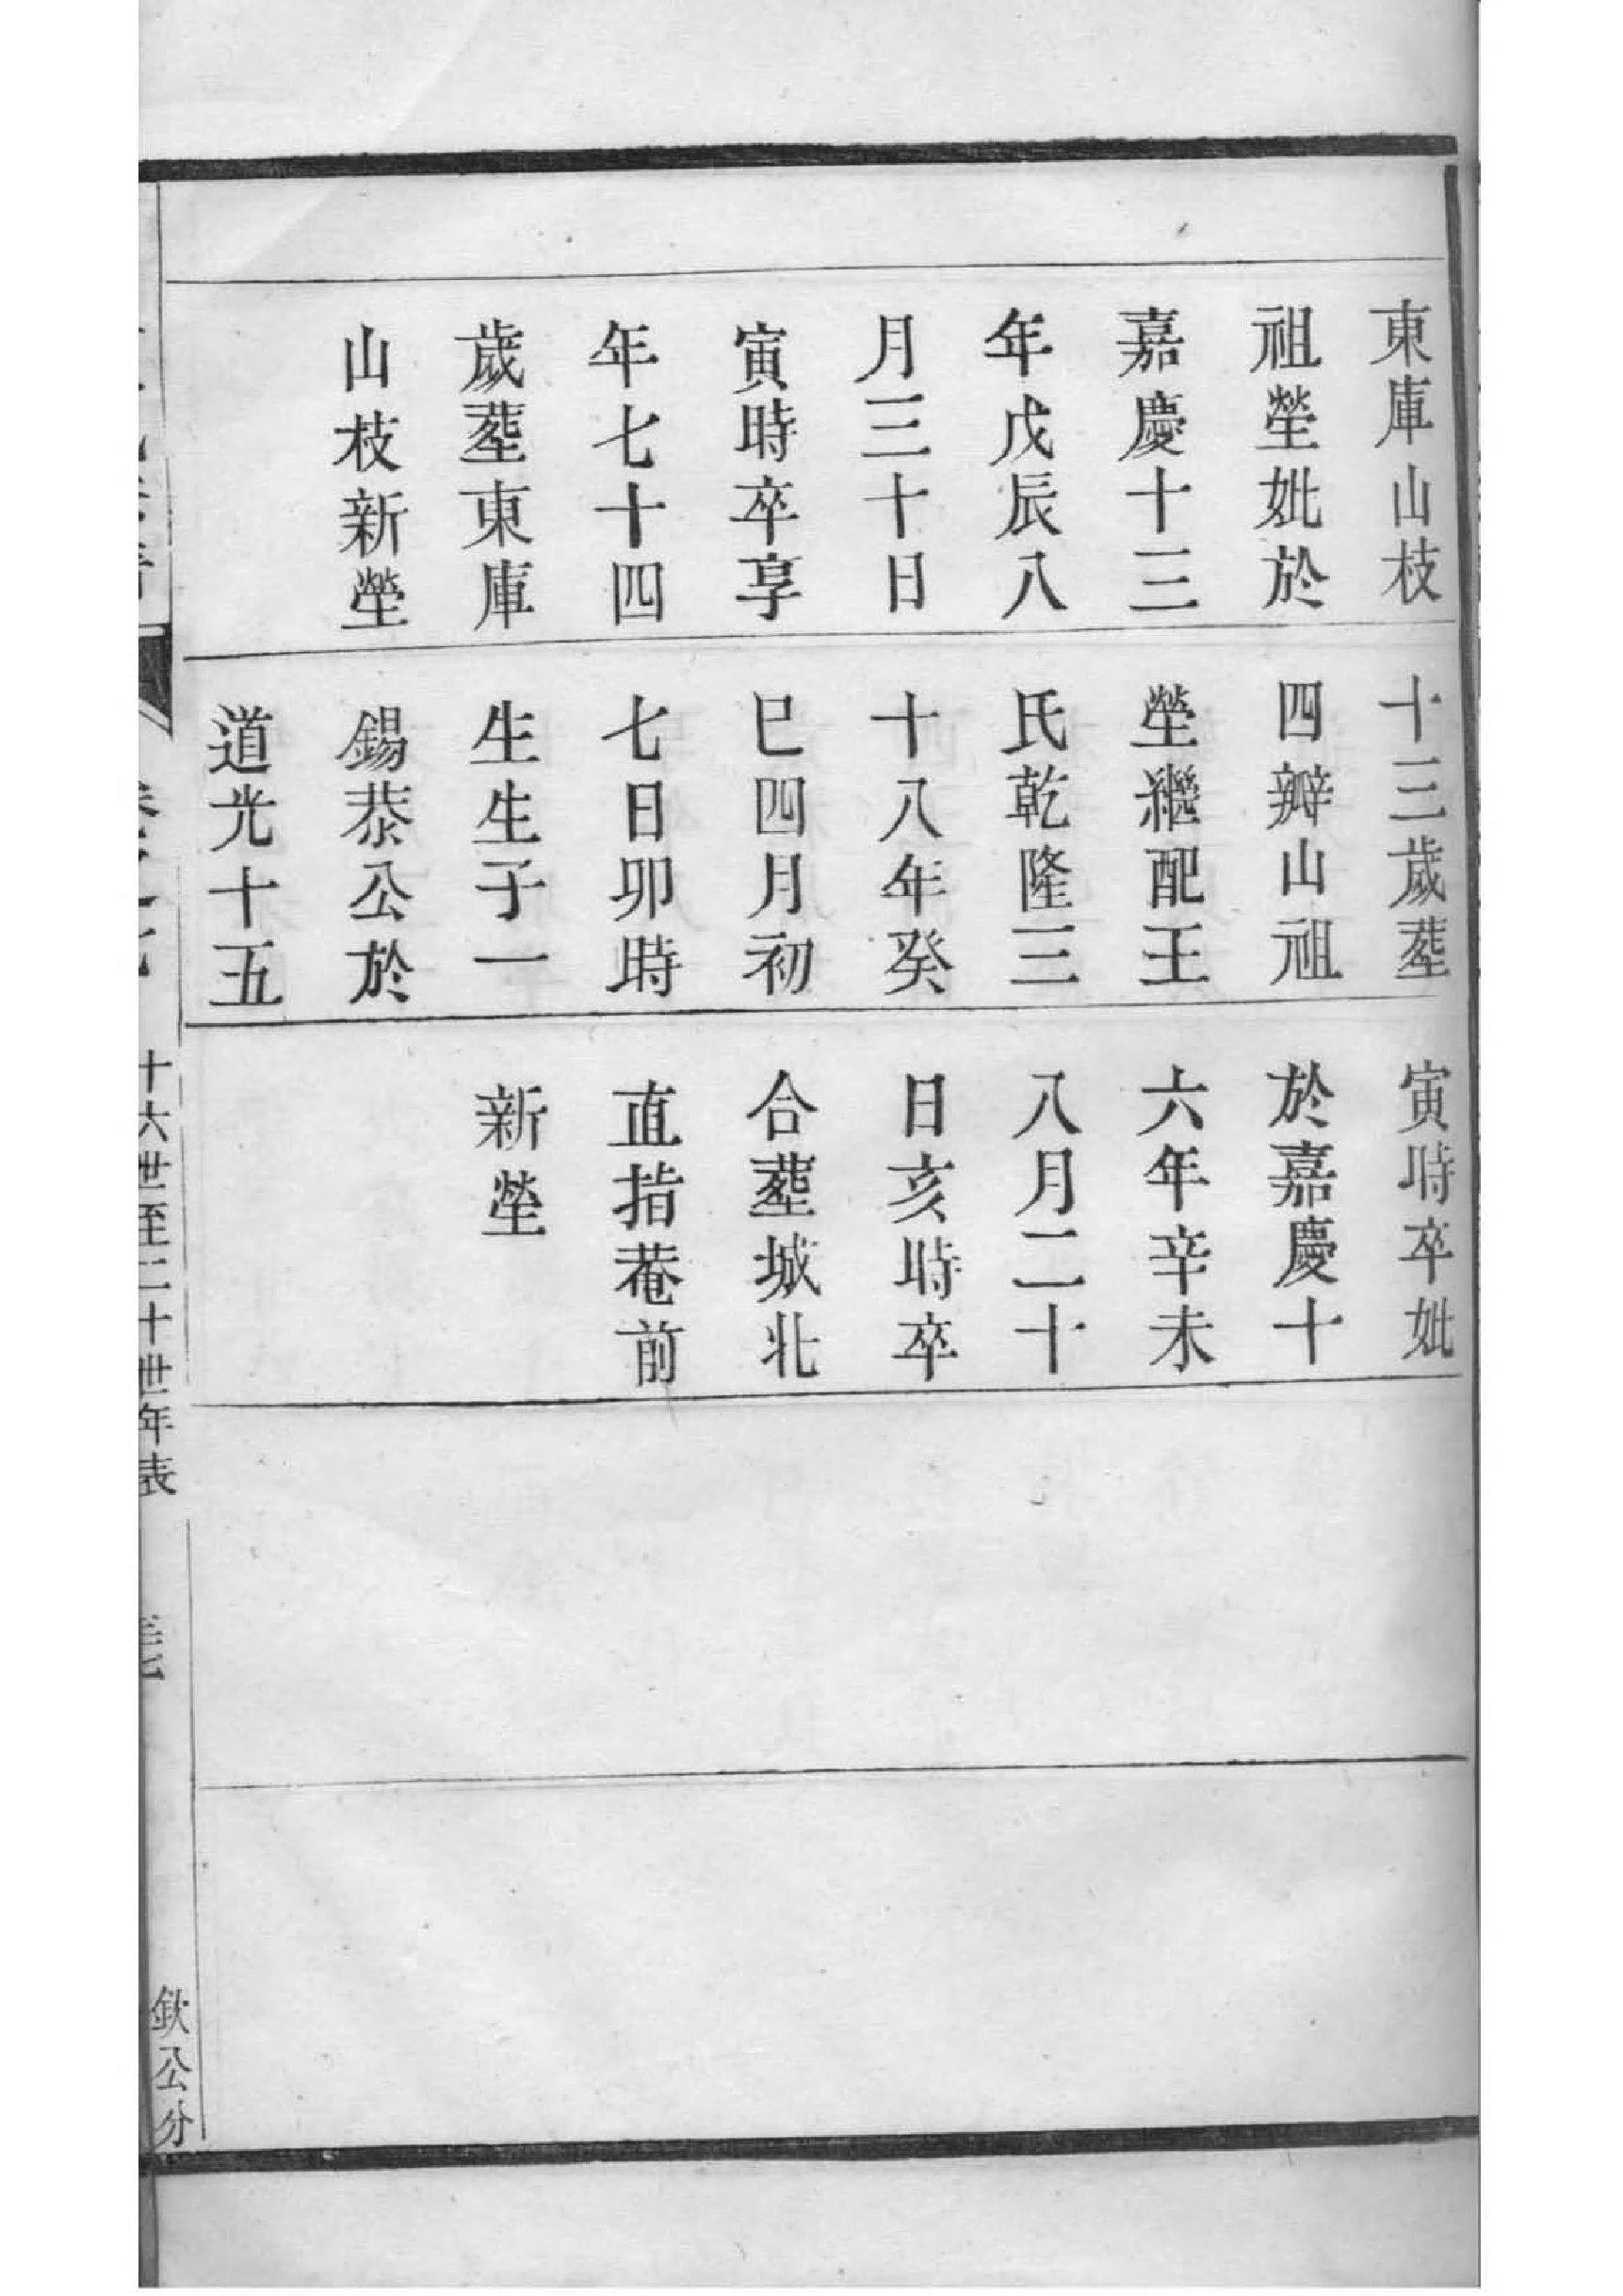 東庫山枝
祖塋妣於
嘉慶十三
年戊辰八
月三十日
寅時卒享
年七十四
歲塟東庫
山枝新塋
十三歲塟
四瓣山祖
塋繼配王
氏乾隆三
十八年癸
巳四月初
七日卯時
生生子一
錫恭公於
道光十五
寅時卒妣
於嘉慶十
六年辛未
八月二十
日亥時卒
合塟城北
直指菴前
新塋
十六世至二十世年表
欽公分